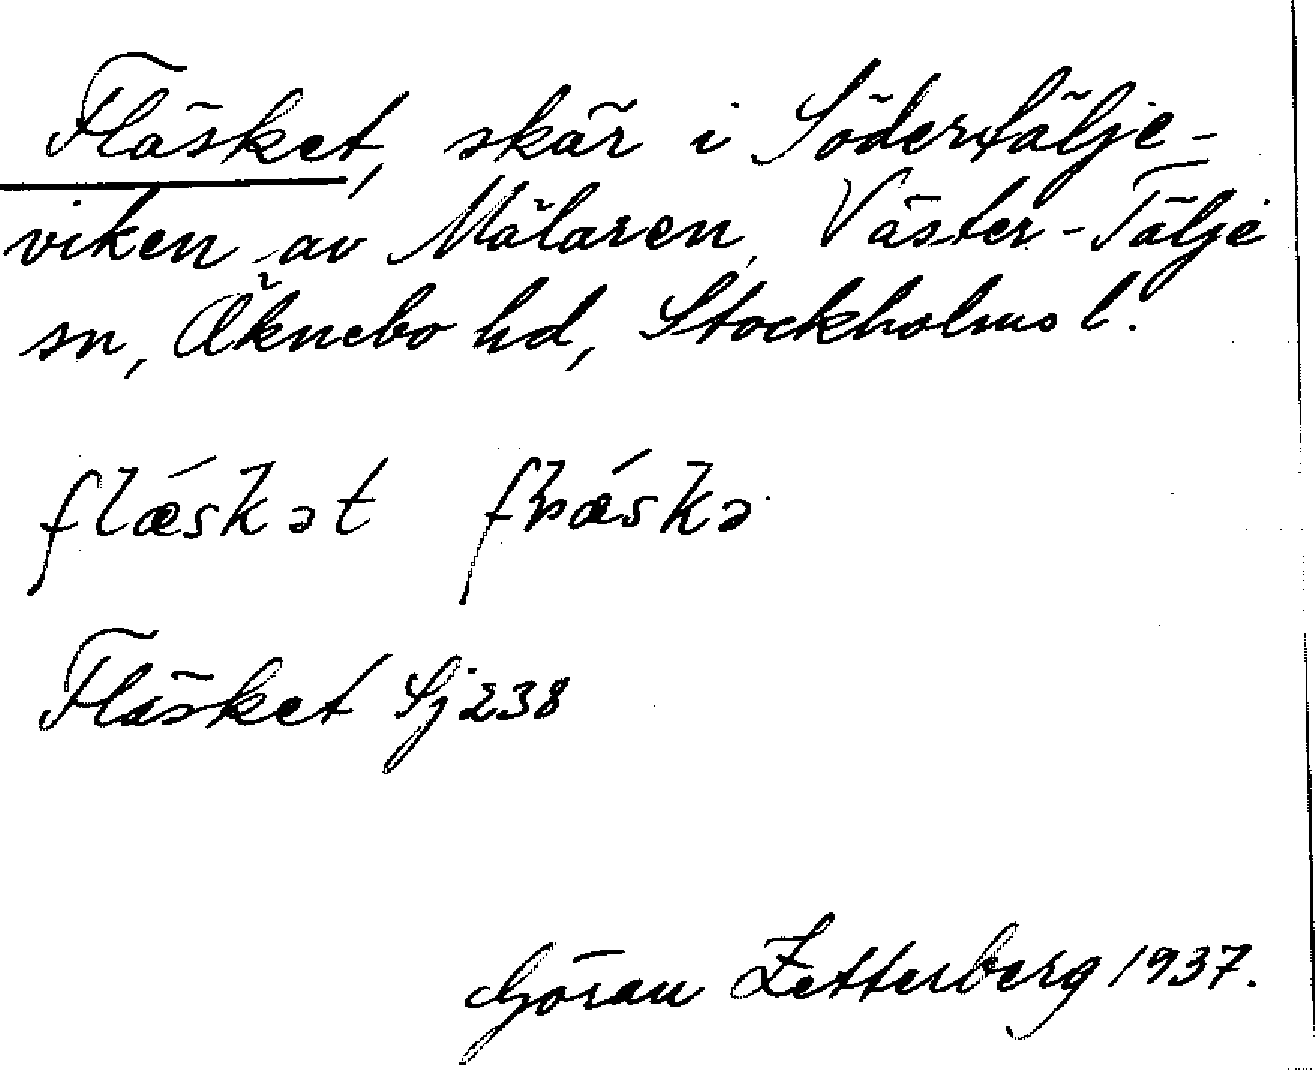 Fläsket, skär i Södertälje-
viken av Mälaren, Väster-Tälje
sn, Öknebo hd, Stockholms l.
flǽskət
Fläsket Sj 238
Göran Zetterberg 1937.